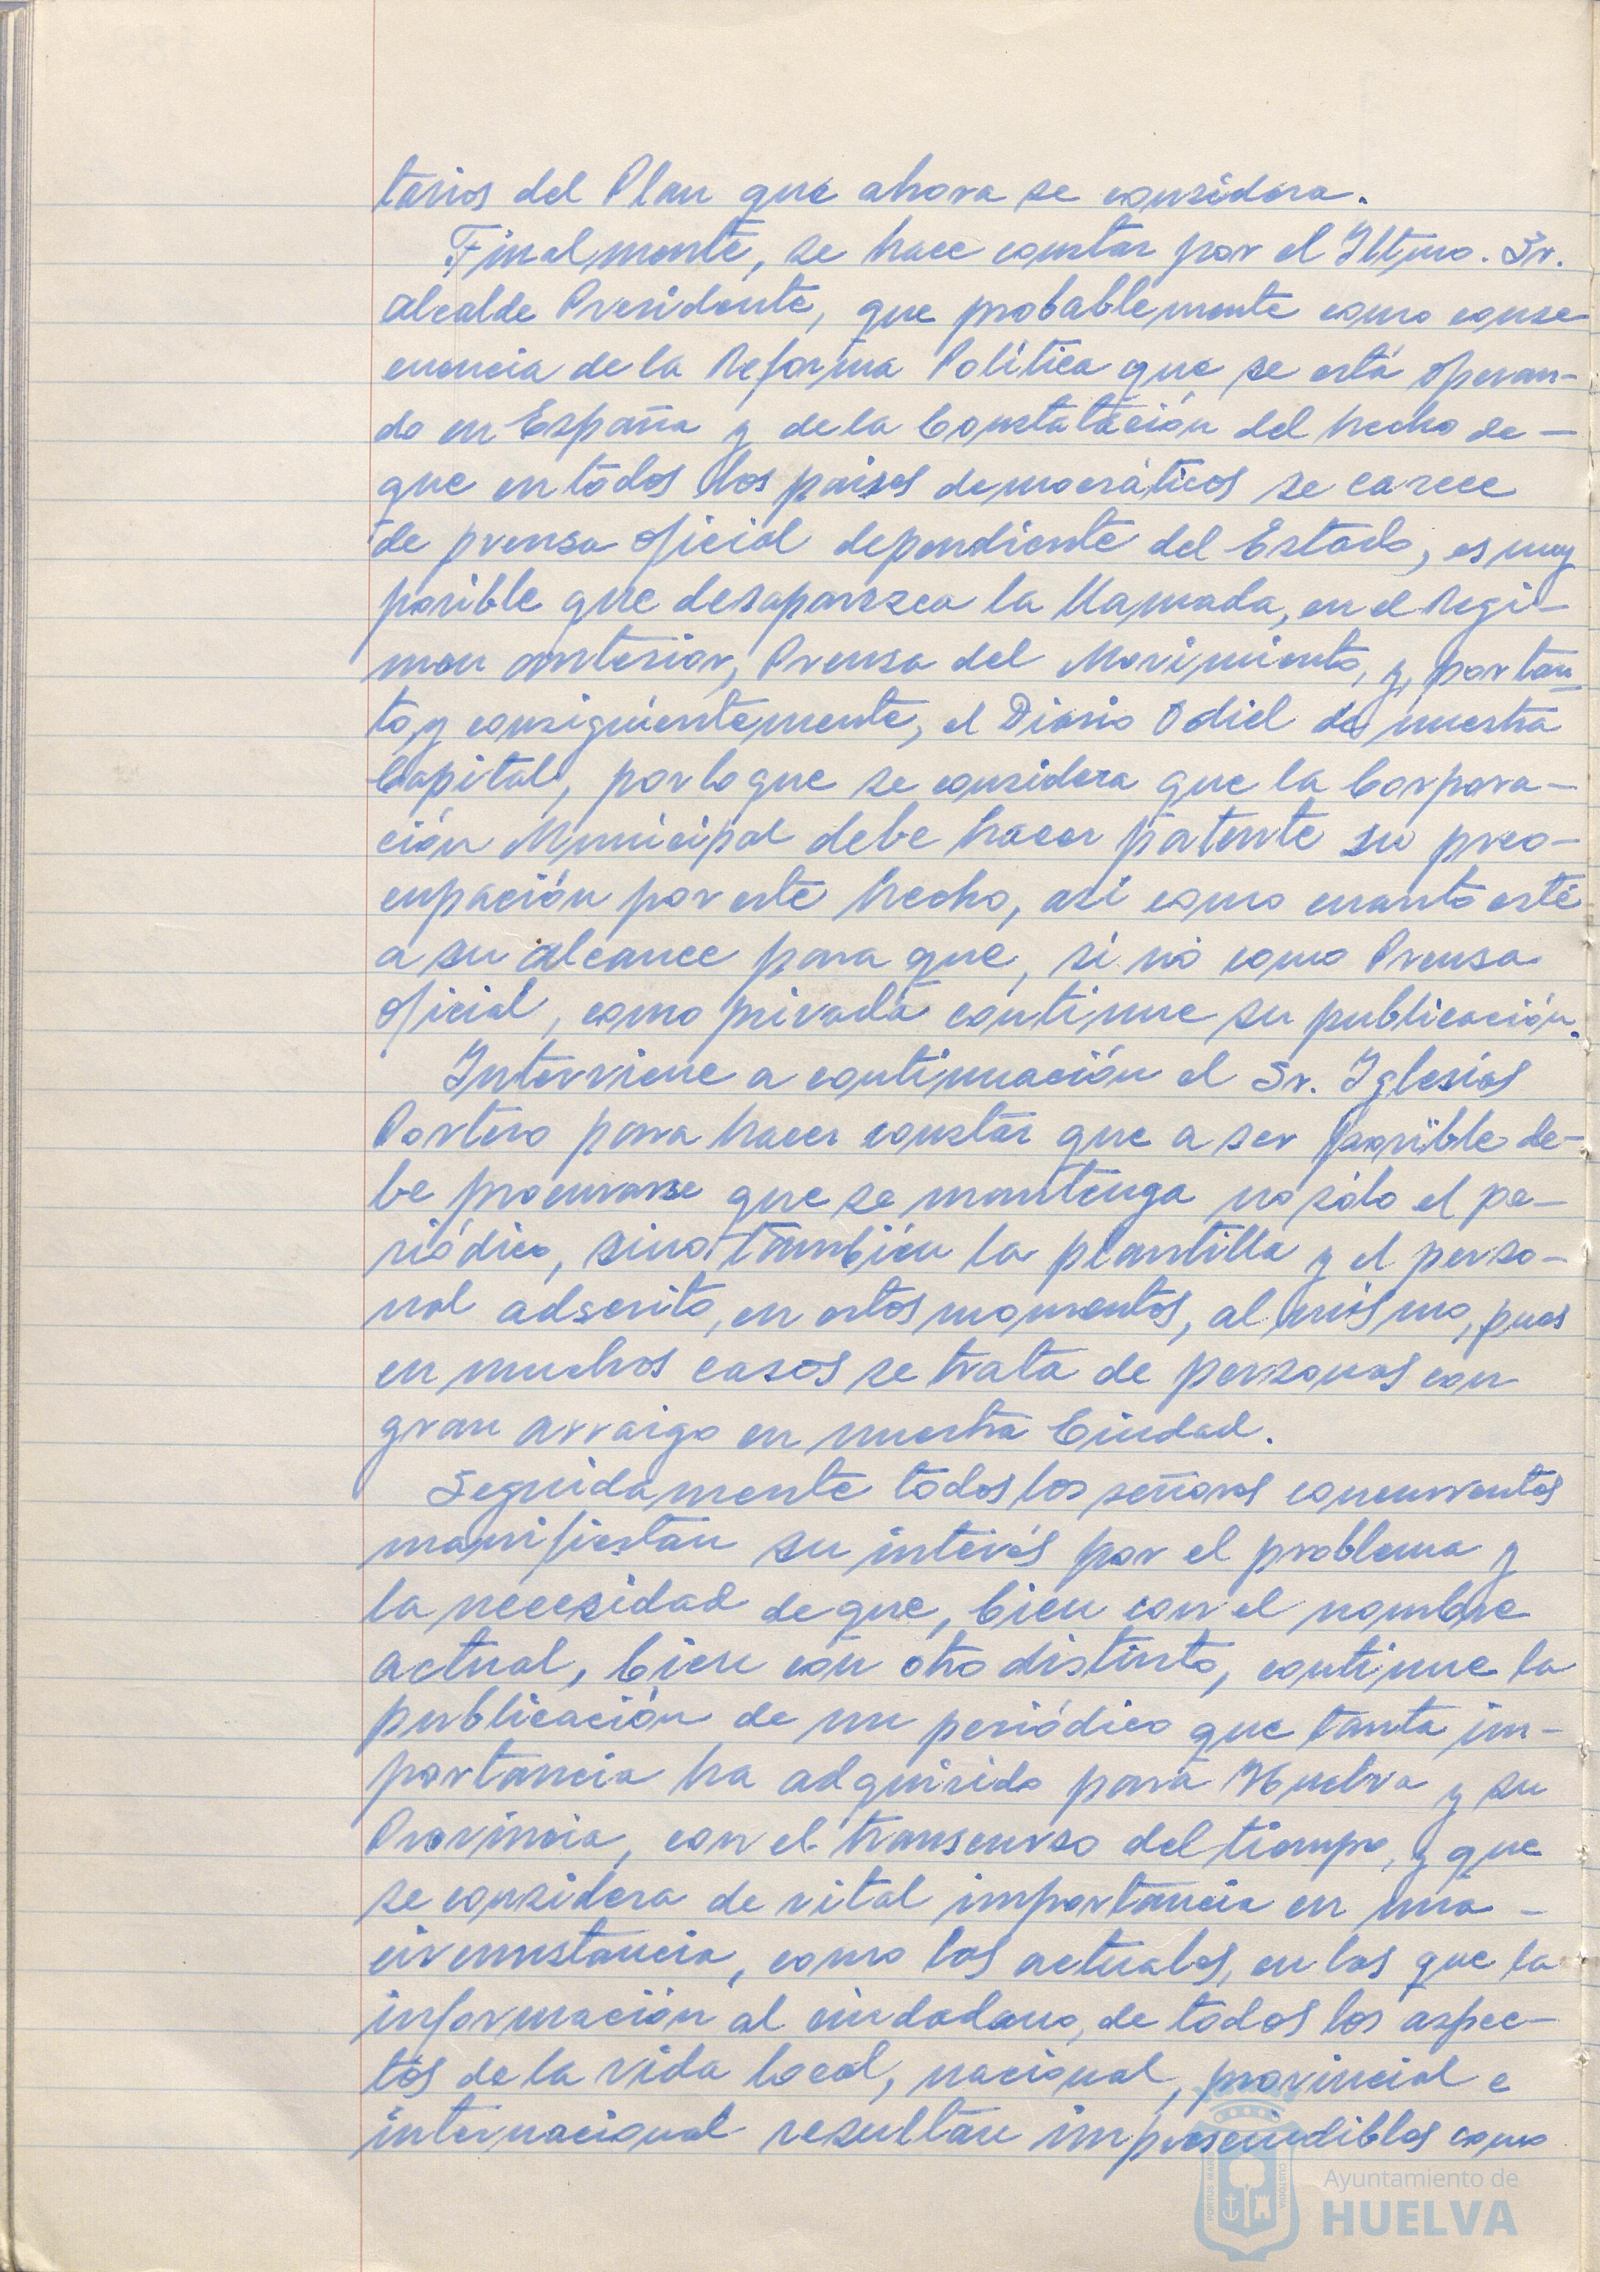 tarios del Plan que ahora se considera.
Finalmente, se hace constar por el Iltmo. Sr.
Alcalde Presidente, que probablemente como conse-
cuencia de la Reforma Política que se está operan-
do en España y de la Constatación del hecho de -
que en todos los paises democráticos se carece
de prensa oficial dependiente del Estado, es muy
posible que desaparezca la llamada, en el Regi-
men anterior, Prensa del Movimiento, y, por tan-
to, y consiguientemente, el Diario Odiel de nuestra
Capital, por lo que se considera que la Corpora-
ción Municipal debe hacer patente su preo-
cupación por este hecho, asi como cuanto esté
a su alcance para que, si no como Prensa
oficial, como privada continue su publicación.
Interviene a continuación el Sr. Iglesias
Portero para hacer constar que a ser posible de-
be procurarse que se mantenga no sólo el pe-
riódico, sino también la plantilla y el perso-
nal adscrito, en estos momentos, al mismo, pues
en muchos casos se trata de personas con
gran arraigo en nuestra Ciudad.
Seguidamente todos los señores concurrentes
manifiestan su interés por el problema y
la necesidad de que, bien con el nombre
actual, bien con otro distinto, continue la
publicación de un periódico que tanta im-
portancia ha adquirido para Huelva y su
Provincia, con el transcurso del tiempo, y que
se considera de vital importancia en una -
circunstancia, como las actuales, en las que la
información al ciudadano, de todos los aspec-
tos de la vida local, nacional, provincial e
internacional resultan imprescindibles como
PORTUS MARIS
CUSTODIA
Ayuntamiento de
HUELVA